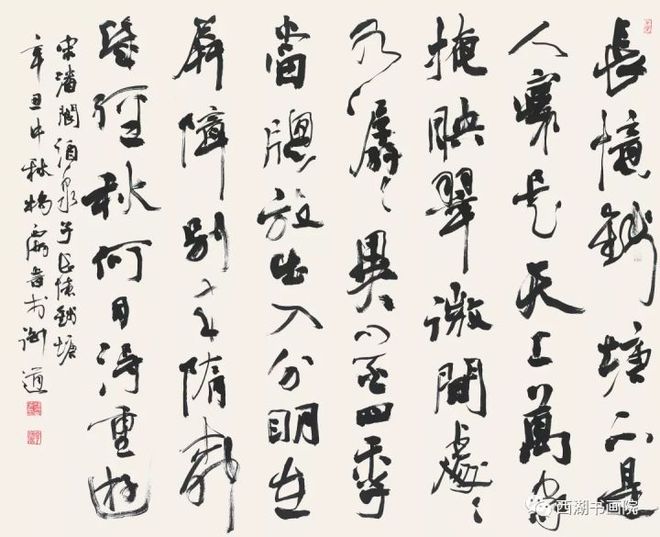 長憶錢塘不是
人寰是天上萬家
掩映翠微間處〻
水潺〻異花四季
當牕放出入分明在
屏障別來隋柳
幾經秋何日得重遊
宋潘閬酒泉子長憶錢塘
辛丑中秋楊書於
西湖书画院